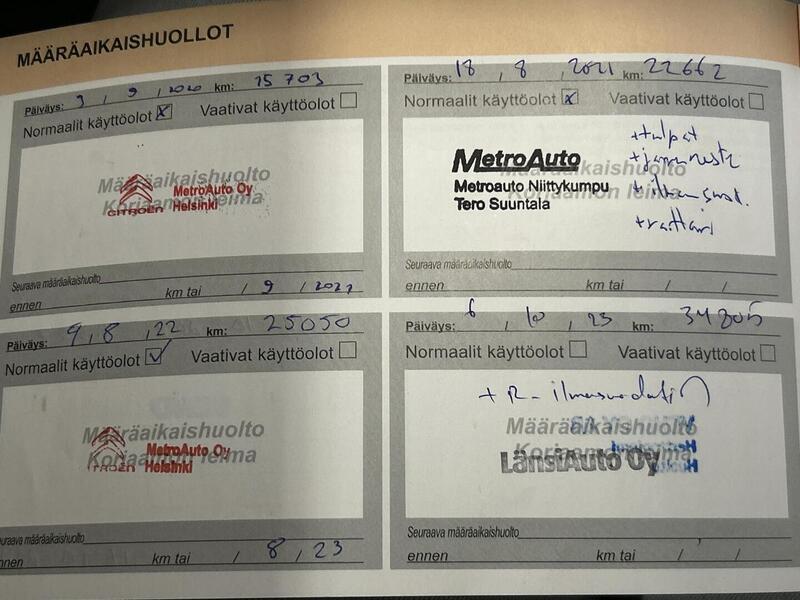 MÄÄRÄAIKAISHUOLLOT
Päiväys: 9 , 9 , 2020 km: 15 703
Normaalit käyttöolot X Vaativat käyttöolot
Määräaikaishuolto
Korjaamon leima
CITROËN
MetroAuto Oy
Helsinki
Seuraava määräaikaishuolto
ennen km tai / 9 / 2021
Päiväys: 18 , 8 , 2021 km: 22662
Normaalit käyttöolot x Vaativat käyttöolot
Määräaikaishuolto
Korjaamon leima
MetroAuto
Metroauto Niittykumpu
Tero Suuntala
+tulpat
+jarruneste
+raitari
Seuraava määräaikaishuolto
ennen km tai / /
Päiväys: 9 , 8 , 22 km: 25050
Normaalit käyttöolot ✓ Vaativat käyttöolot
Määräaikaishuolto
Korjaamon leima
CITROËN
MetroAuto Oy
Helsinki
Seuraava määräaikaishuolto
ennen km tai / 8 , 23
Päiväys: 6 , 10 , 23 km: 34805
Normaalit käyttöolot Vaativat käyttöolot
+ R-ilmansuodatin
Määräaikaishuolto
Korjaamon leima
LänsiAuto Oy
Seuraava määräaikaishuolto
ennen km tai / /